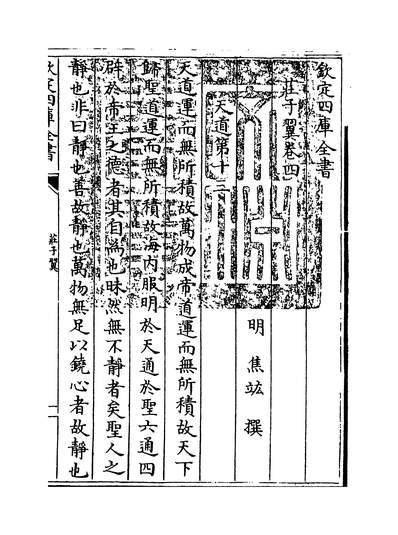 欽定四庫全書
莊子翼卷四
明 焦竑 撰
天道第十三
天道運而無所積故萬物成帝道運而無所積故天下
歸聖道運而無所積故海内服明於天通於聖六通四
辟於帝王之德者其自為也昧然無不靜者矣聖人之
靜也非曰靜也善故靜也萬物無足以鐃心者故靜也
欽定四庫全書
莊子翼
一